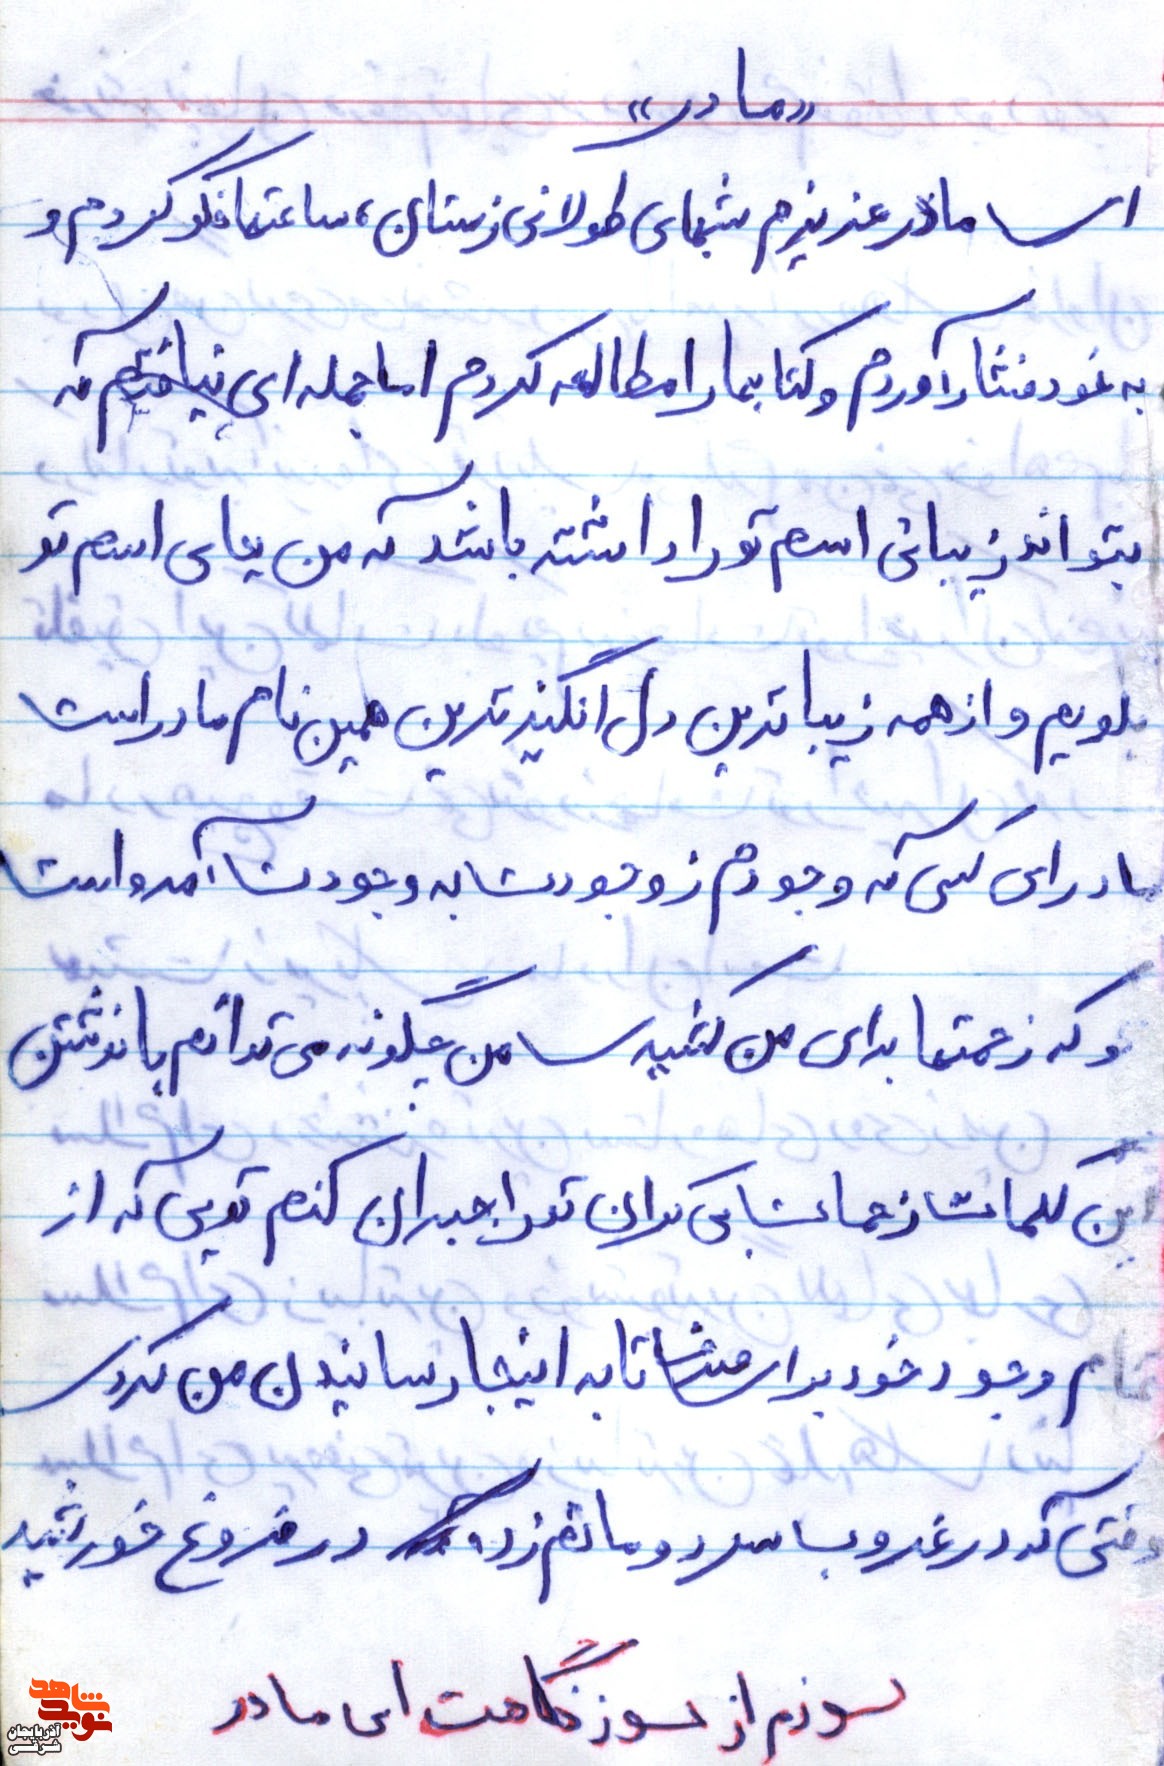 «مادر»
ای مادر عزیزم شبهای طولانی زمستان، ساعتها فکر کردم و
به خود فشار آوردم و کتابها را مطالعه کردم اما جمله ای نیافتم که
بتواند زیبائی اسم تو را داشته باشد که من بجای اسم تو
بگویم و از همه زیباترین دل انگیزترین همین نام مادر است
مادر ای کسی که وجودم ز وجودت به وجود آمده است
تو که زحمتها برای من کشیدی من چگونه می توانم با نوشتن
این کلمات زحمات بی کران تو را جبران کنم تویی که از
تمام وجود خود برای تا به اینجا رسانیدن من کردی
وقتی که در غروب سرد و ماتم زده در فروغ خورشید
سوزم از سوز نگاهت ای مادر
نوید شاهد
آذربایجان
شرقی